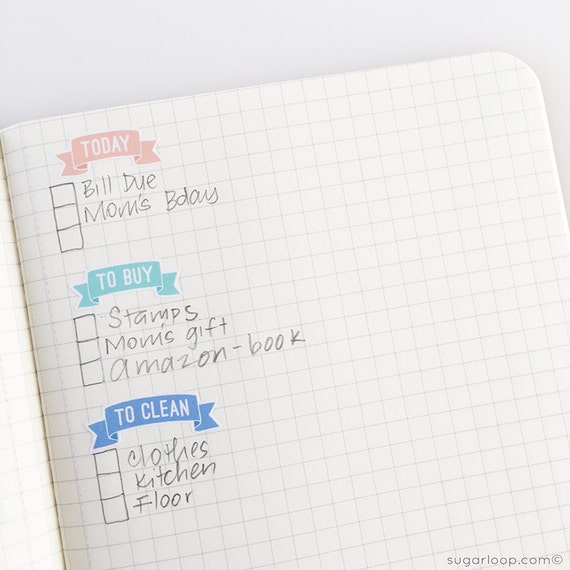 TODAY
Bill Due
Mom's Bday
TO BUY
Stamps
Mom's gift
amazon-book
TO CLEAN
clothes
kitchen
Floor
sugarloop.com©